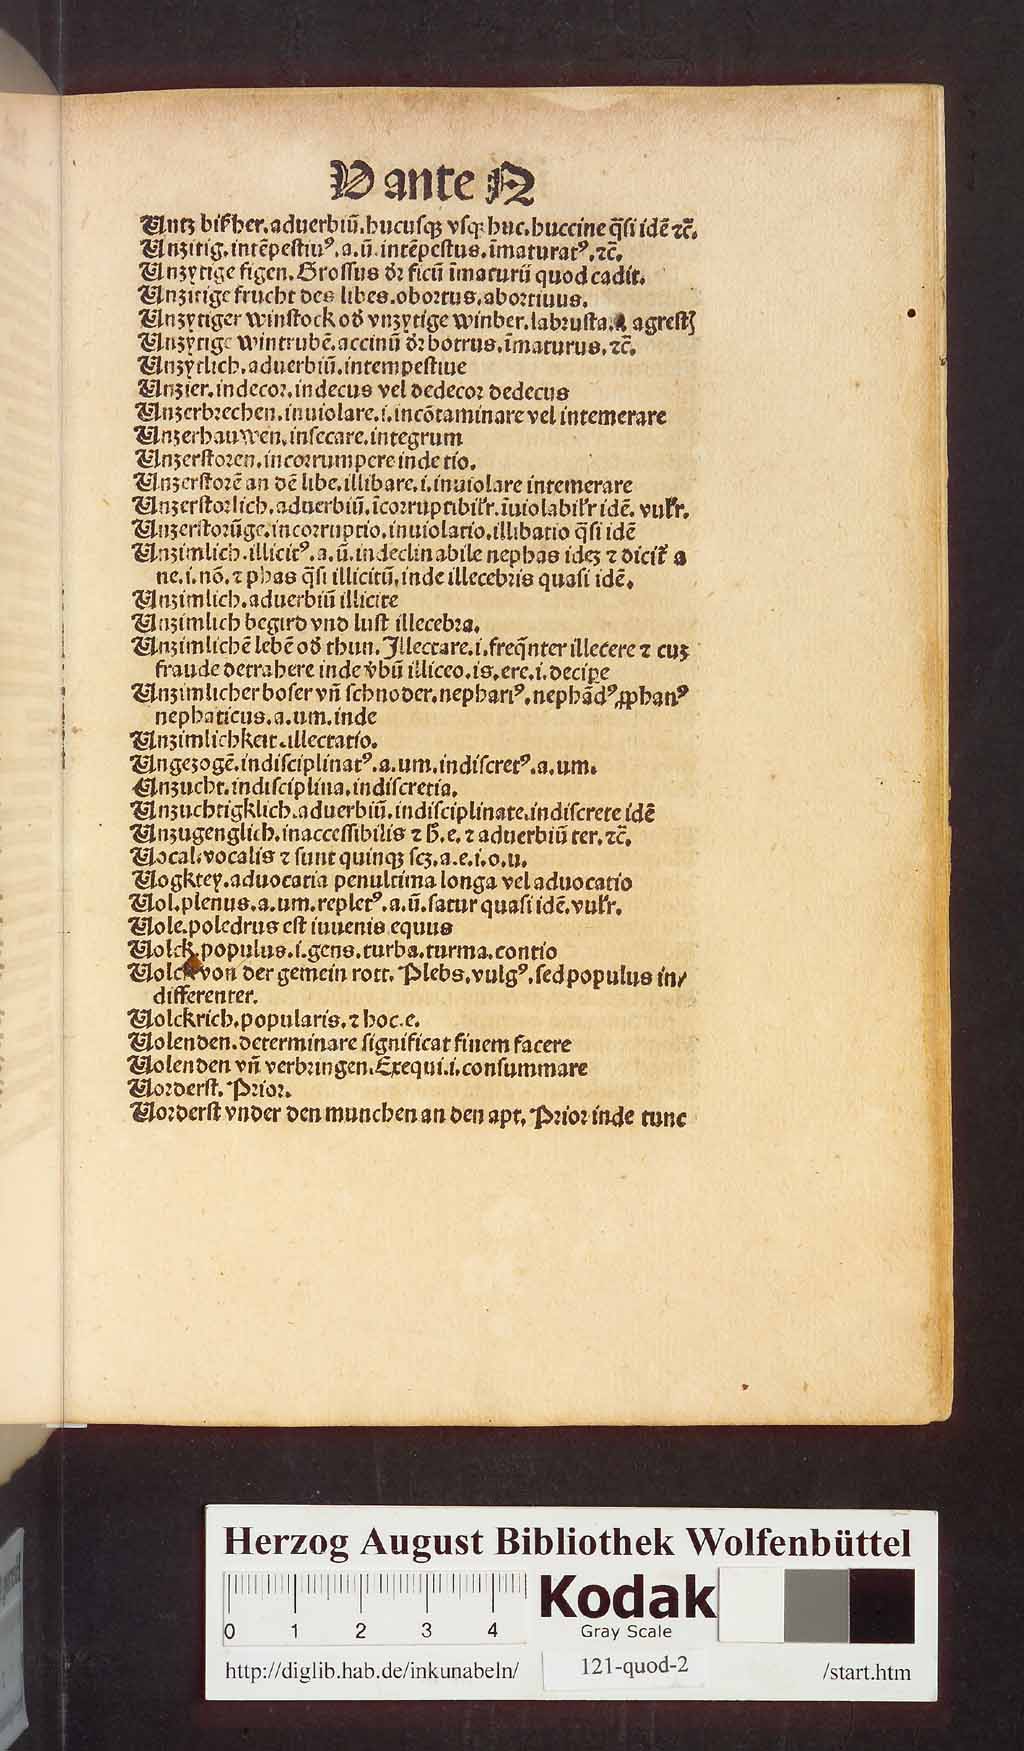 V ante N
Untz bißher. aduerbiū. hucusqꝫ vsqꝫ huc. huccine q̄si idē ⁊c̄.
Unzitig. intēpestiuꝰ. a. ū. intēpestus. īmaturatꝰ. ⁊c̄.
Unzytige figen. Grossus d̛r ficū īmaturū quod cadit.
Unzitige frucht des libes. obortus. abortiuus.
Unzytiger winstock od̛ vnzytige winber. labrusta. agrestꝫ
Unzytige wintrubē. accinū d̛r botrus. īmaturus. ⁊c̄.
Unzytlich. aduerbiū. intempestiue
Unzier. indecor. indecus vel dedecor dedecus
Unzerbrechen. inuiolare. i. incōtaminare vel intemerare
Unzerhauwen. insecare. integrum
Unzerstoren. incorrumpere inde tio.
Unzerstorē an dē libe. illibare. i. inuiolare intemerare
Unzerstorlich. aduerbiū. īcorruptibil̛r. īuiolabil̛r idē. vul̛r.
Unzerstorūge. incorruptio. inuiolatio. illibatio q̄si idē
Unzimlich. illicitꝰ. a. ū. indeclinabile nephas ideꝫ ⁊ dicit̛ a
ne. i. nō. ⁊ phas q̄si illicitū. inde illecebris quasi idē.
Unzimlich. aduerbiū illicite
Unzimlich begird vnd lust illecebra.
Unzimlichē lebē od̛ thun. Illectare. i. freq̄nter illecere ⁊ cuꝫ
fraude detrahere inde v̛bū illiceo. is. ere. i. decipe
Unzimlicher boser vn̄ schnoder. nephariꝰ. nephādꝰ ꝓphanꝰ
nephaticus. a. um. inde
Unzimlichkeit. illectatio.
Ungezogē. indisciplinatꝰ. a. um. indiscretꝰ. a. um.
Unzucht. indisciplina. indiscretia.
Unzuchtigklich. aduerbiū. indisciplinate. indiscrete idē
Unzugenglich. inaccessibilis ⁊ h̄. e. ⁊ aduerbiū ter. ⁊c̄.
Vocal. vocalis ⁊ sunt quinqꝫ scꝫ. a. e. i. o. u.
Vogktey. aduocatia penultima longa vel aduocatio
Vol. plenus. a. um. repletꝰ. a. ū. satur quasi idē. vul̛r.
Vole. poledrus est iuuenis equus
Volck. populus. i. gens. turba. turma. contio
Volck von der gemein rott. Plebs. vulgꝰ. sed populus in/
differenter.
Volckrich. popularis. ⁊ hoc. e.
Volenden. determinare significat finem facere
Volenden vn̄ verbringen. Exequi. i. consummare
Vorderst. Prior.
Vorderst vnder den munchen an den apt. Prior inde tunc
Herzog August Bibliothek Wolfenbüttel
0 1 2 3 4
Kodak
Gray Scale
http://diglib.hab.de/inkunabeln/ 121-quod-2 /start.htm